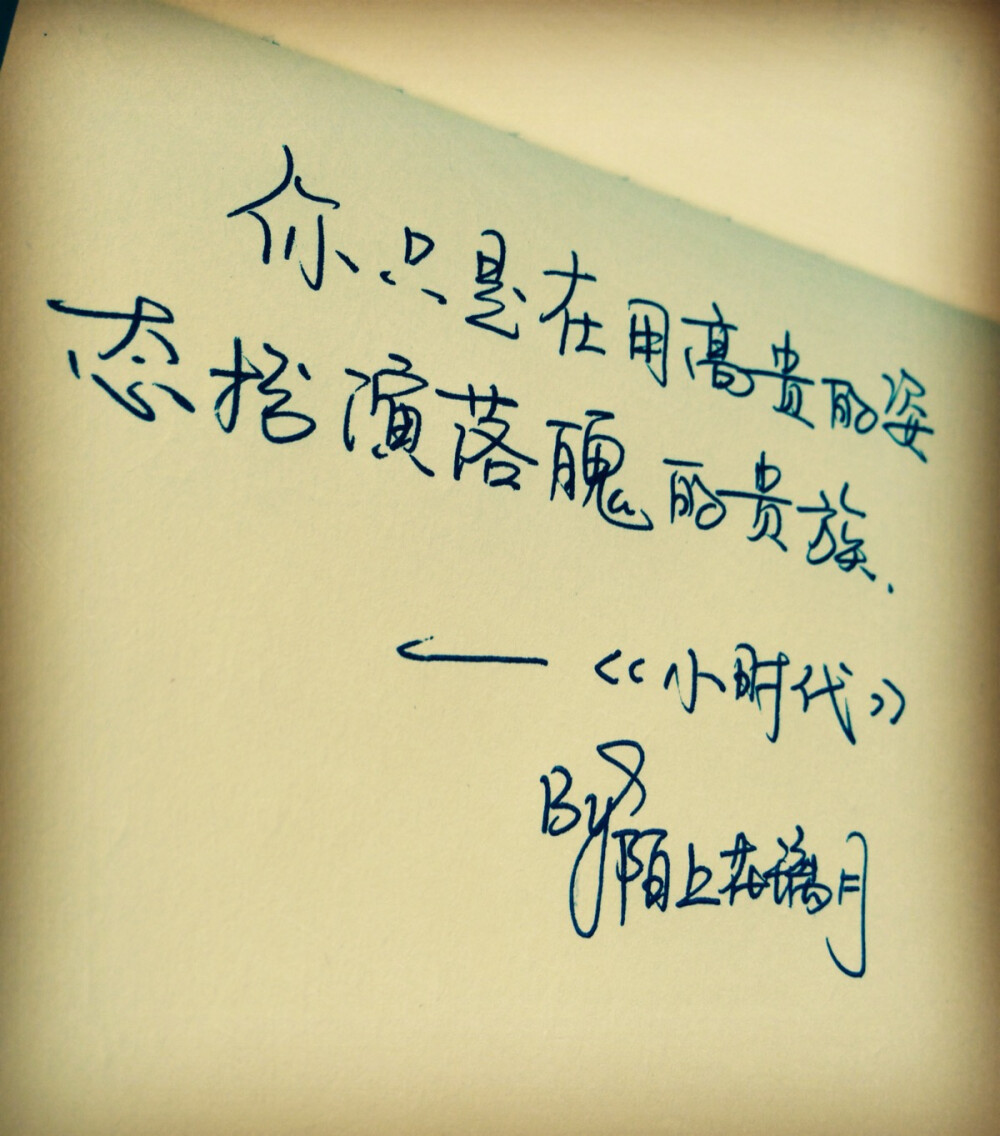 你只是在用高贵的姿
态扮演落魄的贵族.
←《小时代》
By 陌上花璃月